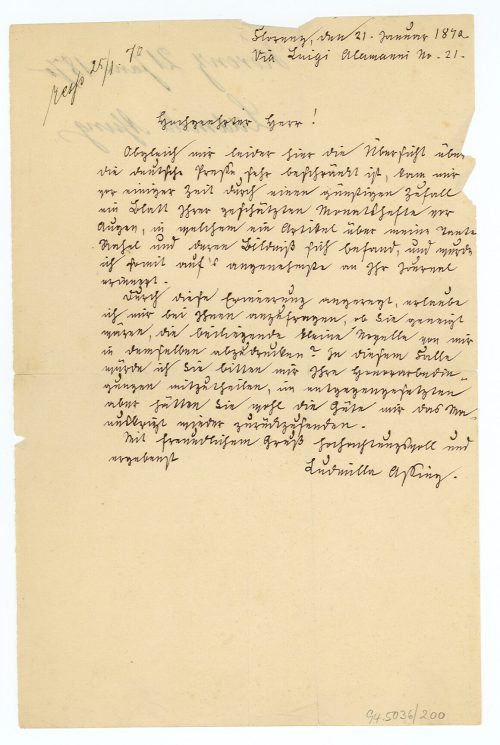 resp 25/1. 70
Florenz, den 21. Januar 1870
Via Luigi Alamanni No. 21.
Hochgeehrter Herr!
Obgleich mir leider hier die Übersicht über
die deutsche Presse sehr beschränkt ist, kam mir
vor einiger Zeit durch einen günstigen Zufall
ein Blatt Ihrer geschätzten Monatshefte vor
Augen, in welchem ein Artikel über meine Tante
Rahel und deren Bildniß sich befand, und wurde
ich somit auf's angenehmste an Ihr Journal
erinnert.
Durch diese Erinnerung angeregt, erlaube
ich mir bei Ihnen anzufragen, ob Sie geneigt
wären, die beiliegende kleine Novelle von mir
in demselben abzudrucken? In diesem Falle
würde ich Sie bitten mir Ihre Honorarbedin-
gungen mitzutheilen, im entgegengesetzten
aber hätten Sie wohl die Güte mir das Ma-
nuskript wieder zurückzusenden.
Mit freundlichem Gruß hochachtungsvoll und
ergebenst
Ludmilla Assing.
94.5036/200